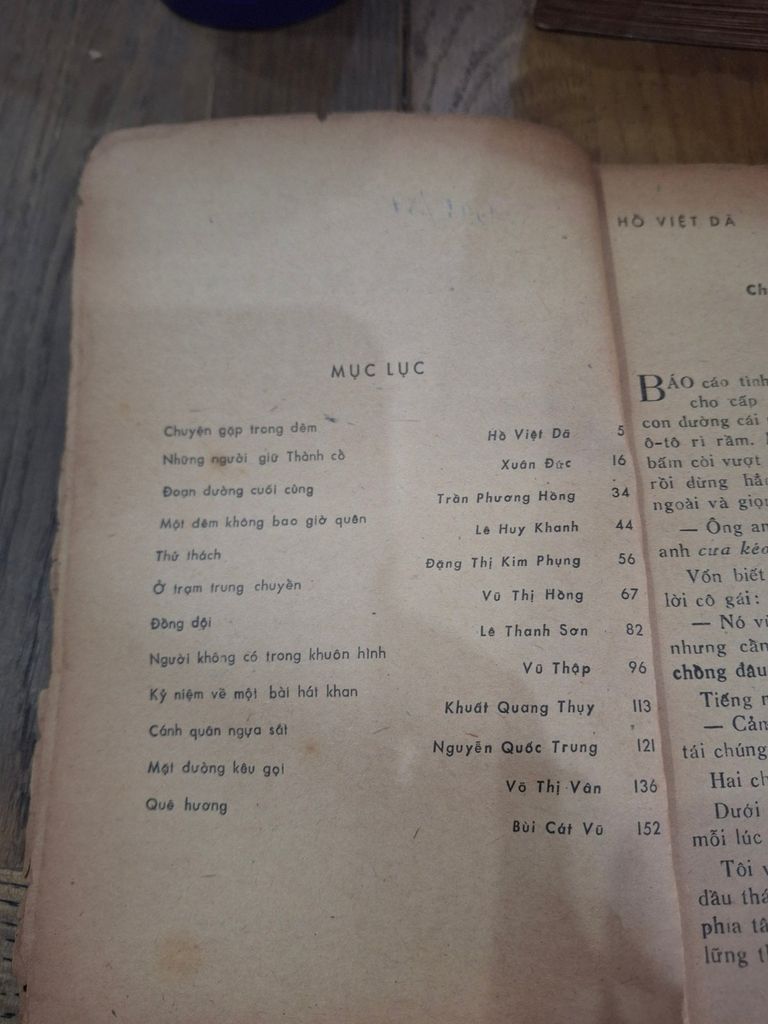 MỤC LỤC
Chuyện gặp trong đêm Hồ Việt Dã 5
Những người giữ Thành cồ Xuân Đức 16
Đoạn đường cuối cùng Trần Phương Hồng 34
Một đêm không bao giờ quên Lê Huy Khanh 44
Thử thách Đặng Thị Kim Phụng 56
Ở trạm trung chuyền Vũ Thị Hồng 67
Đồng đội Lê Thanh Sơn 82
Người không có trong khuôn hình Vũ Thập 96
Kỷ niệm về một bài hát khan Khuất Quang Thụy 113
Cánh quân ngựa sắt Nguyễn Quốc Trung 121
Mặt đường kêu gọi Võ Thị Vân 136
Quê hương Bùi Cát Vũ 152
HỒ VIỆT DÃ
Ch
BÁO cáo tình
cho cấp
con đường cái
ô-tô rì rầm.
bấm còi vượt
rồi dừng hẳ
ngoài và giọ
— Ông an
anh cưa kéo
Vốn biết
lời cô gái:
— Nó vừ
nhưng cần
chồng đâu
Tiếng
— Cản
tái chúng
Hai ch
Dưới
mỗi lúc
Tôi v
đầu thá
phía tâ
lững th